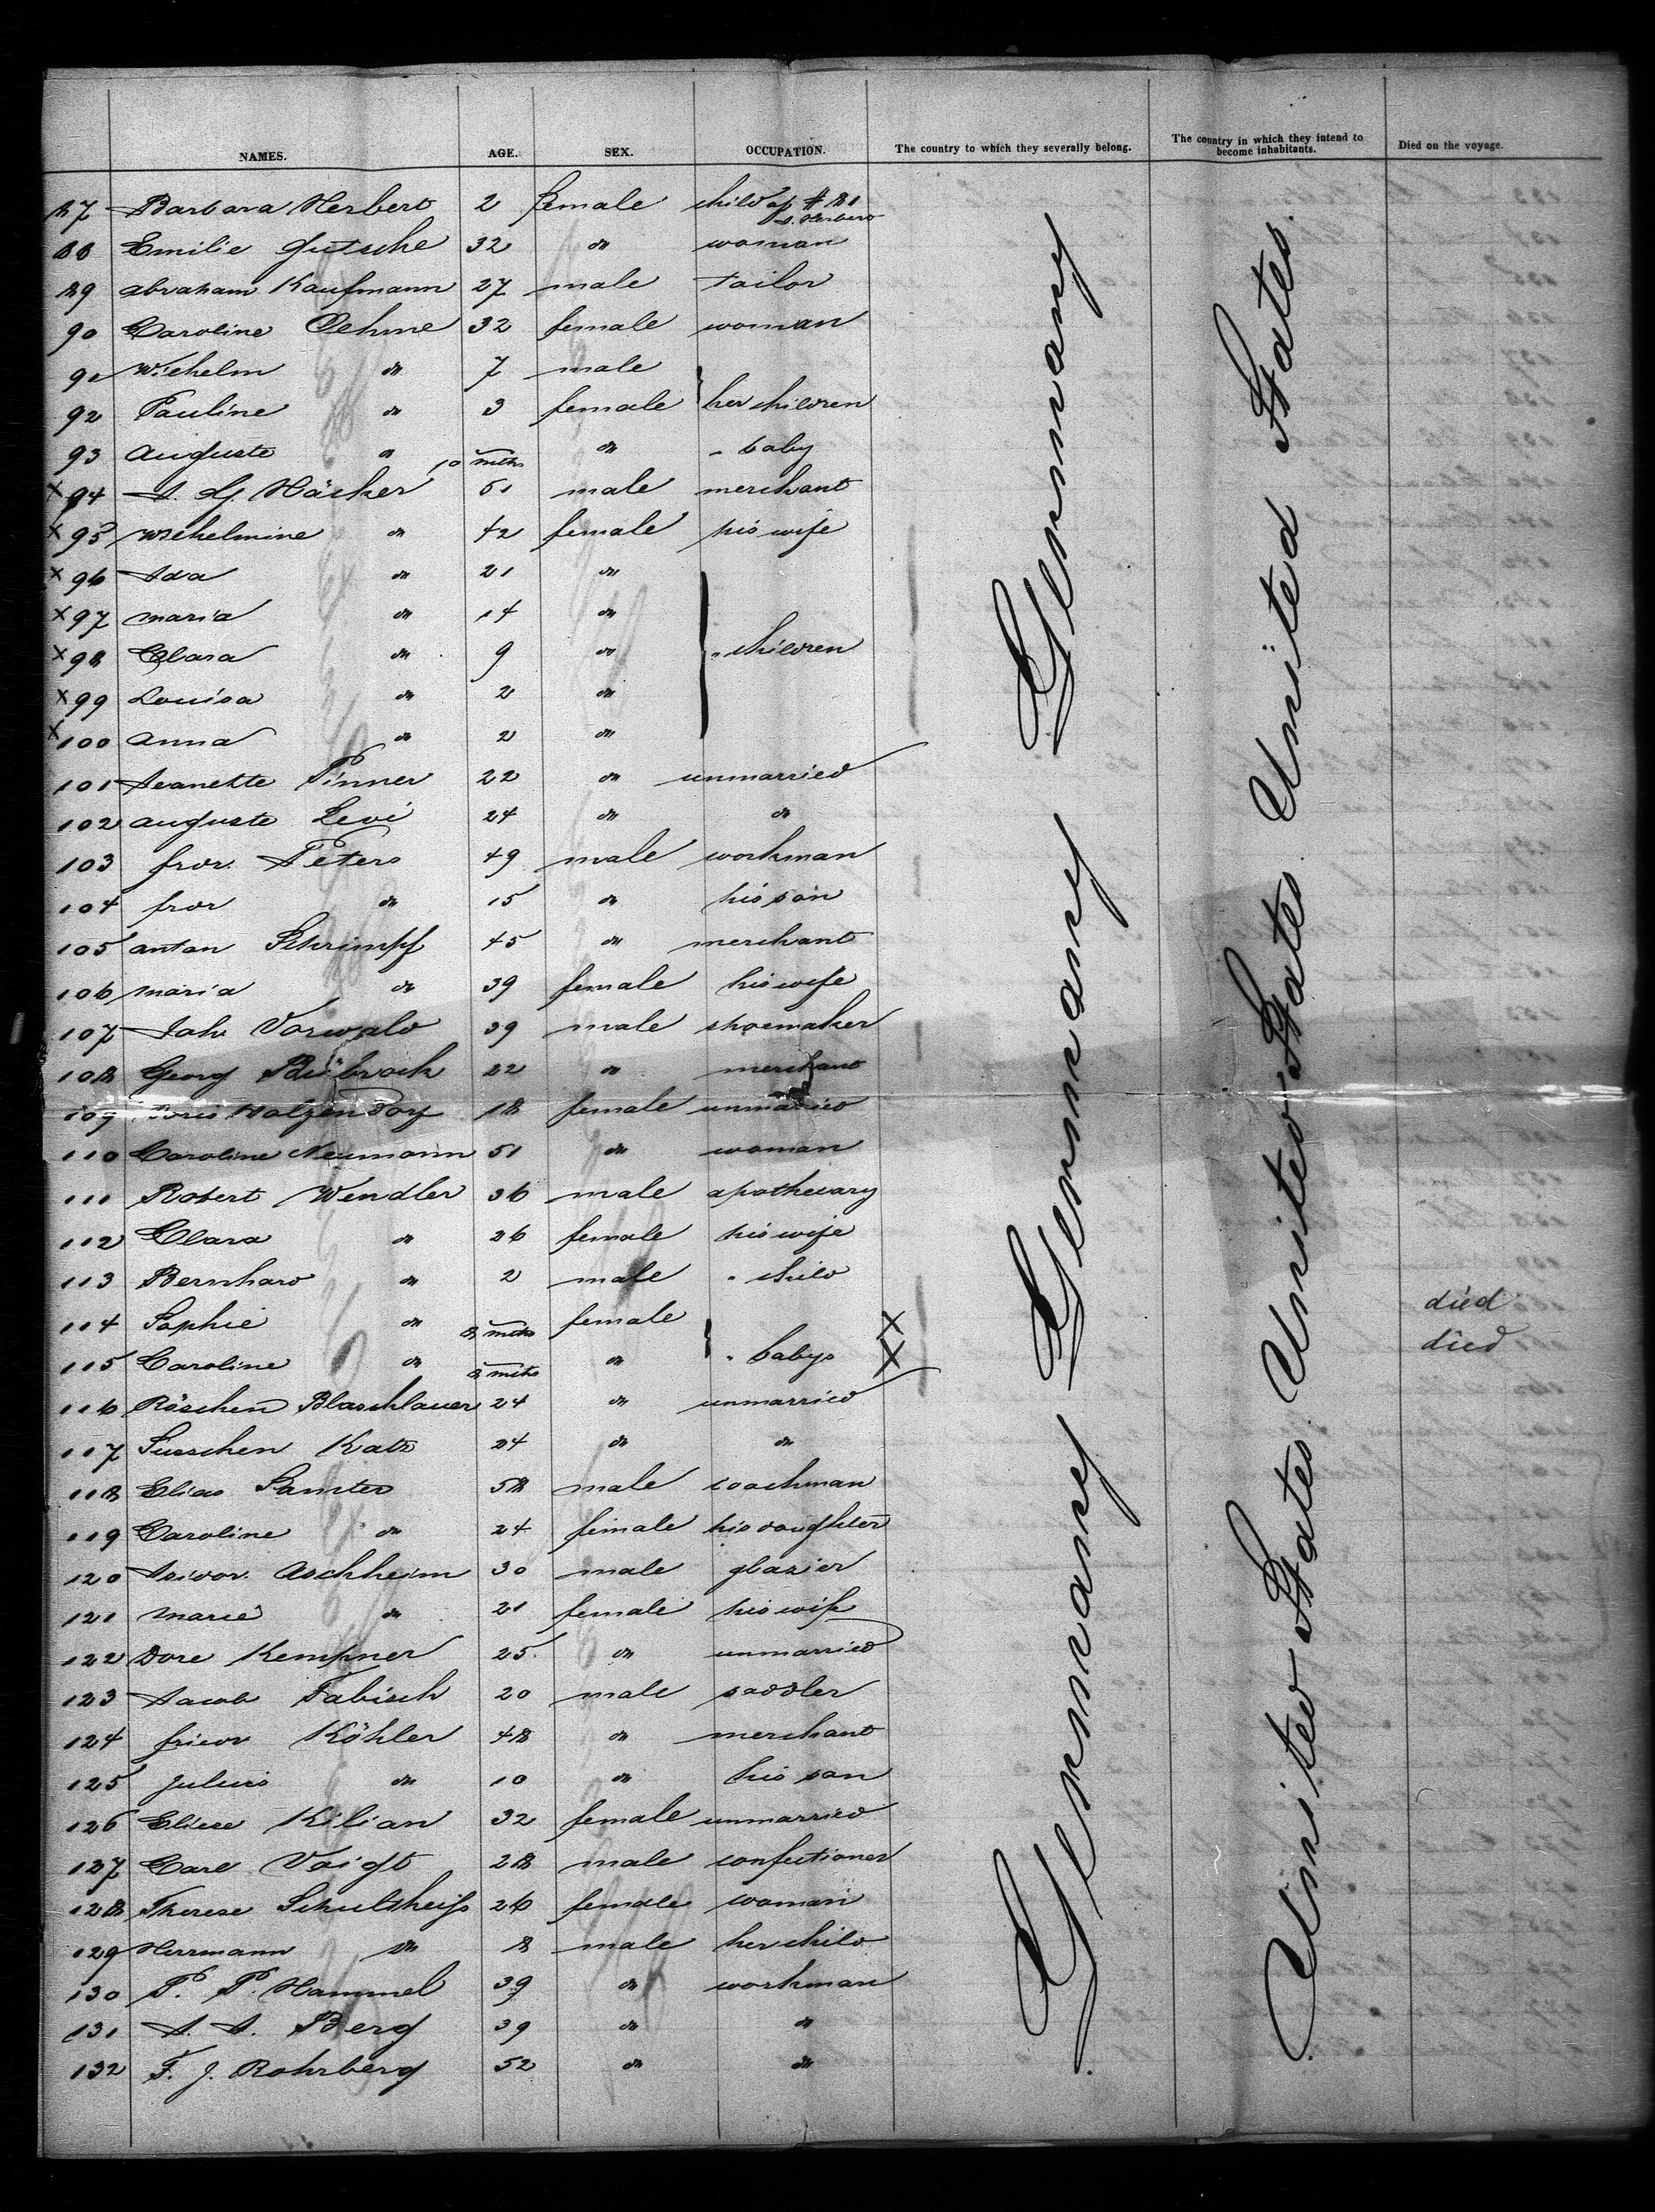 NAMES. AGE. SEX. OCCUPATION. The country to which they severally belong. The country in which they intend to become inhabitants. Died on the voyage.
87 Barbara Herbert 2 female child of # 81
Herbert
88 Emilie Gutsche 32 do woman
89 Abraham Kaufmann 27 male tailor
90 Caroline Oehme 32 female woman
91 Wilhelm do 7 male
92 Pauline do 3 female her children
93 Auguste do 10 mths do " baby
x 94 A. G. Häcker 51 male merchant
x 95 Wilhelmine do 42 female his wife
x 96 Ida do 21 do
x 97 Maria do 14 do
x 98 Clara do 9 do " children
x 99 Louisa do 2 do
x 100 Anna do 2 do
101 Jeanette Pinner 22 do unmarried
102 Auguste Levi 24 do do
103 Frdr. Peters 49 male workman
104 Frdr do 15 do his son
105 Anton Schrimpf 45 do merchant
106 Maria do 39 female his wife
107 Joh. Vorwald 39 male shoemaker
108 Georg 22 do merchant
109 Doris Holzendorf 18 female unmarried
110 Caroline Neumann 51 do woman
111 Robert Wendler 36 male apothecary
112 Clara do 26 female his wife
113 Bernhard do 2 male " child
114 Sophie do 8 mths female X died
115 Caroline do 8 mths do " babys X died
116 Röschen Blaschlauer 24 do unmarried
117 Susschen Katz 24 do do
118 Elias Samter 58 male coachman
119 Caroline do 24 female his daughter
120 Isidor Aschheim 30 male glazier
121 Marie do 21 female his wife
122 Dore Kempner 25 do unmarried
123 Jacob Fabisch 20 male saddler
124 Friedr Köhler 48 do merchant
125 Julius do 10 do his son
126 Eliese Kilian 32 female unmarried
127 Carl Voigt 28 male confectioner
128 Therese Schultheiß 26 female woman
129 Herrmann do 8 male her child
130 P. P. Hammel 39 do workman
131 A. A. Berg 39 do do
132 F. J. Rohrberg 52 do do
Germany Germany Germany Germany
United States United States United States